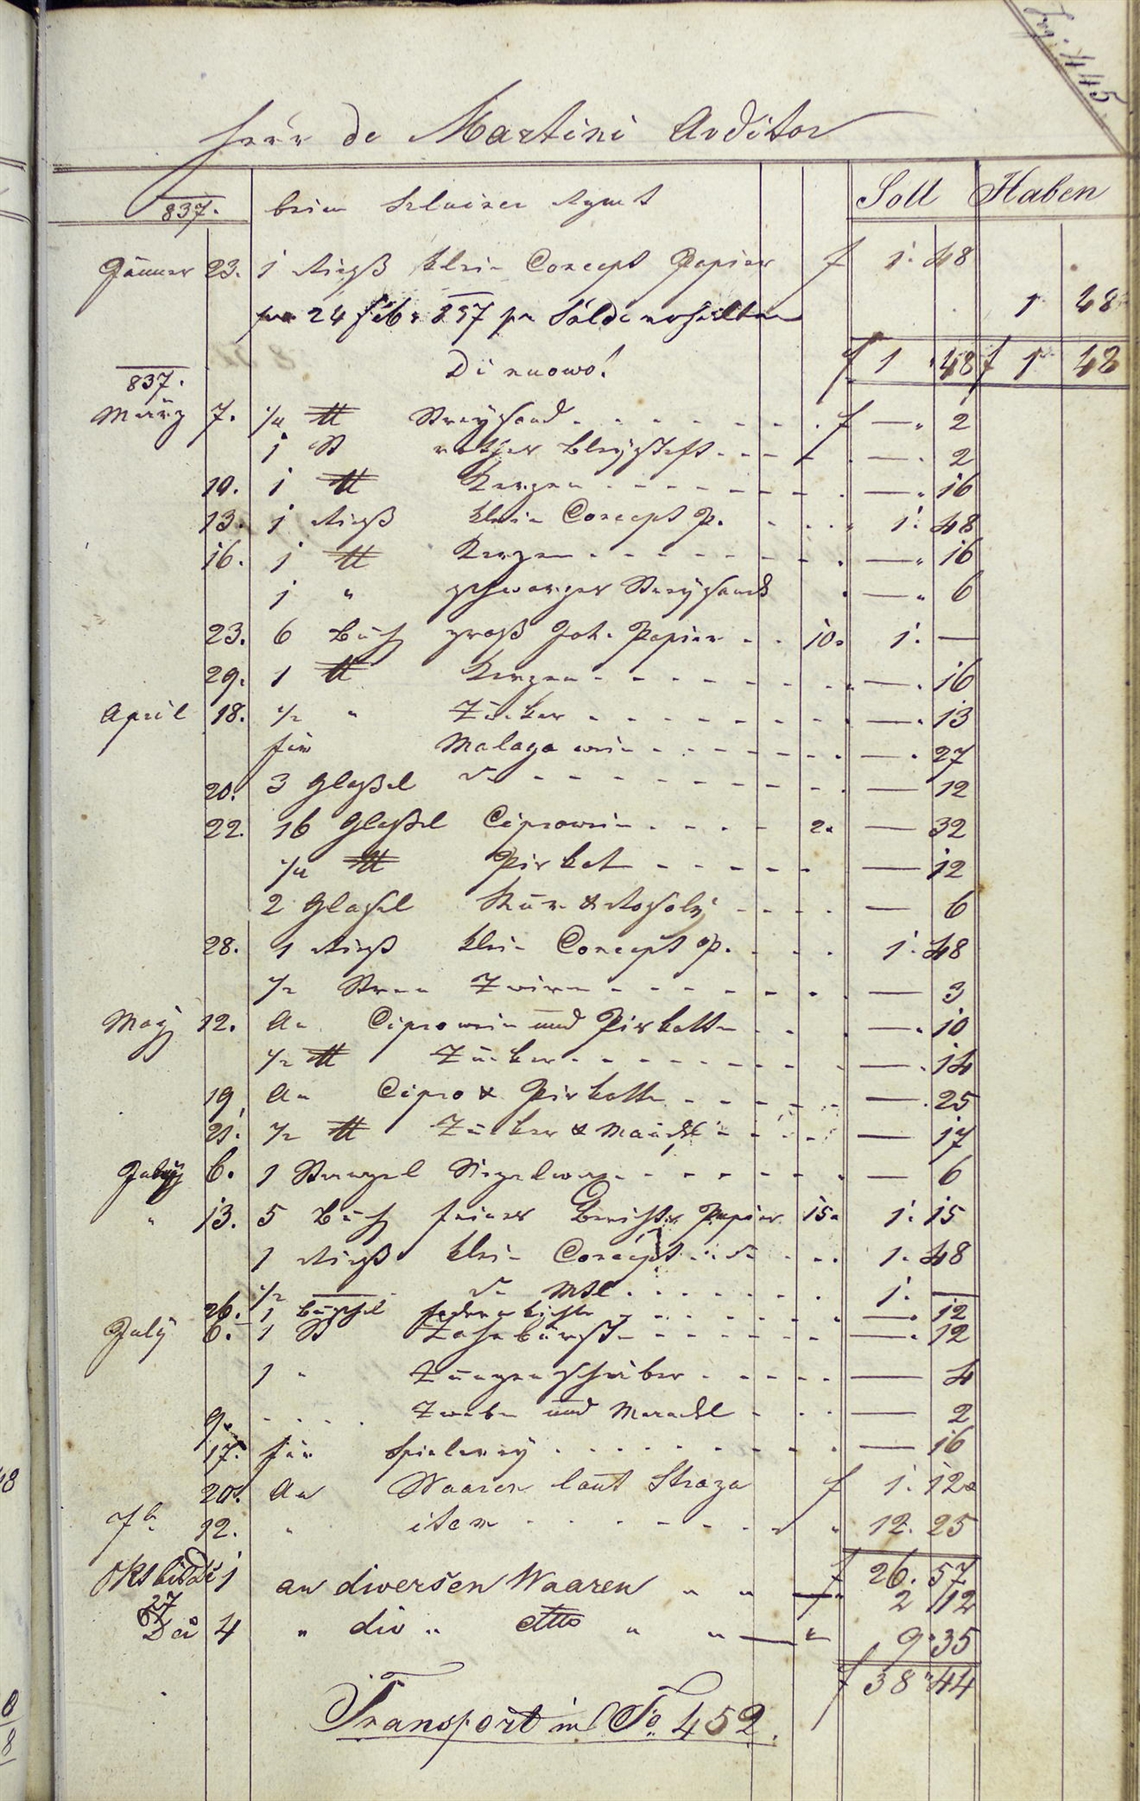 445
Herr de Martini Auditor
Soll Haben
837. beim
Jänner 23. 1 Rieß klein Concept Papier f 1. 48
24 Feb. 837 pr Saldo erhalten 1 48
f 1 48 f 1 48
Di nuovo!
837.
März 7. ¼ ℔ Streysand f — 2
1 St rother Bleystift — 2
10. 1 ℔ Kerzen — 16
13. 1 Rieß klein Concept P. 1. 48
16. 1 ℔ Kerzen — 16
1 " schwarzer Streysand — 6
23. 6 Buch groß Papier 10. 1. —
29. 1 ℔ Kerzen — 16
April 18. ½ " Zucker — 13
für Malaga wein — 27
20. 3 Glaßel do — 12
22. 16 Glaßel Ciprowein 2. — 32
¼ ℔ Piskot — 12
2 Glasel & Rosoly — 6
28. 1 Rieß klein Concept P. 1. 48
½ Zwirn — 3
May 12. An Ciprowein und Piskotten — 10
½ ℔ Zucker — 14
19. An Cipro & Piskotten — 25
21. ½ ℔ Zucker & — 17
July 6. 1 Stangel Siegelwax — 6
" 13. 5 Buch feines Papier 15. 1. 15
1 Rieß klein Concept do 1. 48
½ do 1. —
26. 1 — 12
July 6. 1 St Zahnbürste — 12
1 " — 4
9. und — 2
17. für — 16
20. An Waaren laut Strazza f 1. 12
7b 12. " item 12. 25
f 26. 57
1 an diversen Waaren " " f 2 12
27
4 " div " detto " " 9. 35
f 38 44
Transport in Fo 452.